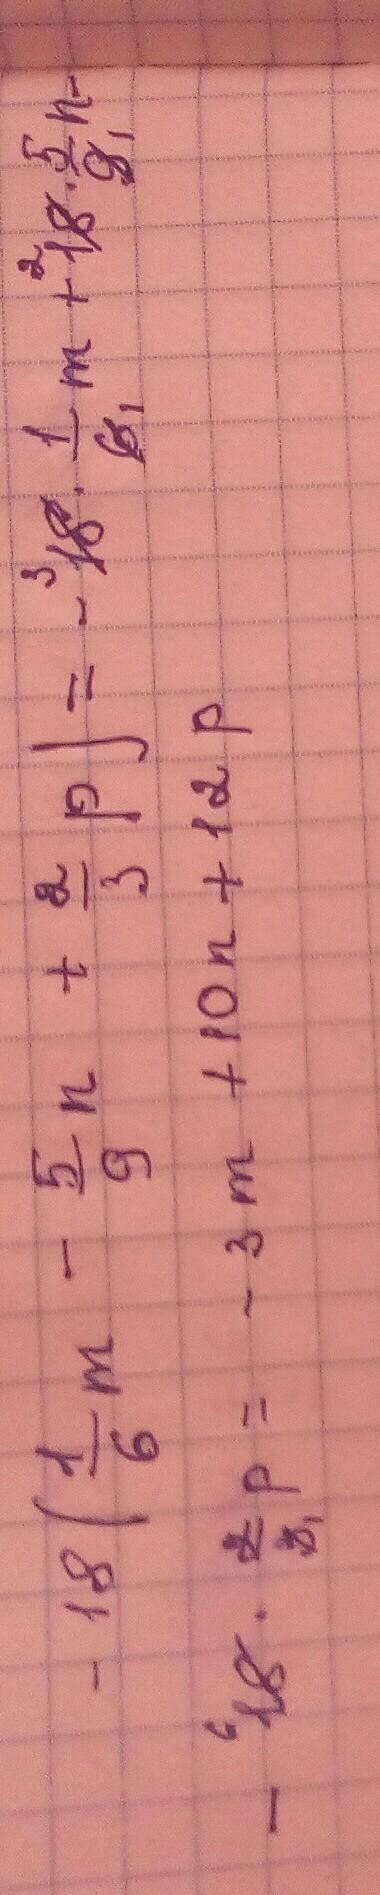 -18(1/6 m - 5/9 n + 2/3 p) = -³18 · 1/6₁ m + ²18 · 5/9₁ n -
- ⁶18 · 2/3₁ p = -3m + 10n + 12p